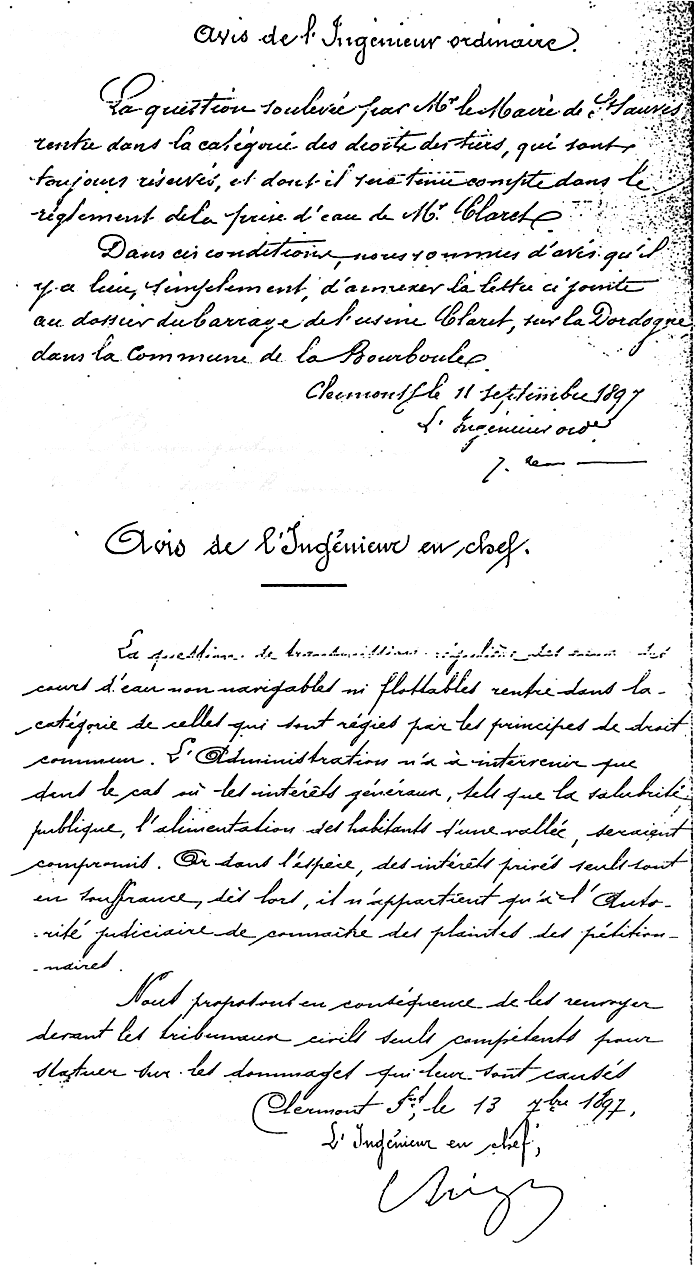 Avis de l'Ingénieur ordinaire.
La question soulevée par Mr le Maire de St Sauves
rentre dans la catégorie des droits des tiers, qui sont
toujours réservés, et dont il sera tenu compte dans le
règlement de la prise d'eau de Mr Claret.
Dans ces conditions, nous sommes d'avis qu'il
y a lieu, simplement, d'annexer la lettre ci jointe
au dossier du barrage de l'usine Claret, sur la Dordogne,
dans la commune de la Bourboule.
Clermont le 11 septembre 1897
L'Ingénieur ordre
Avis de l'Ingénieur en chef.
La question de transmission régulière des eaux des
cours d'eau non navigables ni flottables rentre dans la
catégorie de celles qui sont régies par les principes de droit
commun. L'Administration n'a à intervenir que
dans le cas où les intérêts généraux, tels que la salubrité
publique, l'alimentation des habitants d'une vallée, seraient
compromis. Or dans l'espèce, des intérêts privés seuls sont
en souffrance, dès lors, il n'appartient qu'à l'Auto-
-rité judiciaire de connaître des plaintes des pétition-
-naires.
Nous proposons en conséquence de les renvoyer
devant les tribunaux civils seuls compétents pour
statuer sur les dommages qui leur sont causés
Clermont Fd, le 13 7bre 1897.
L'Ingénieur en chef,